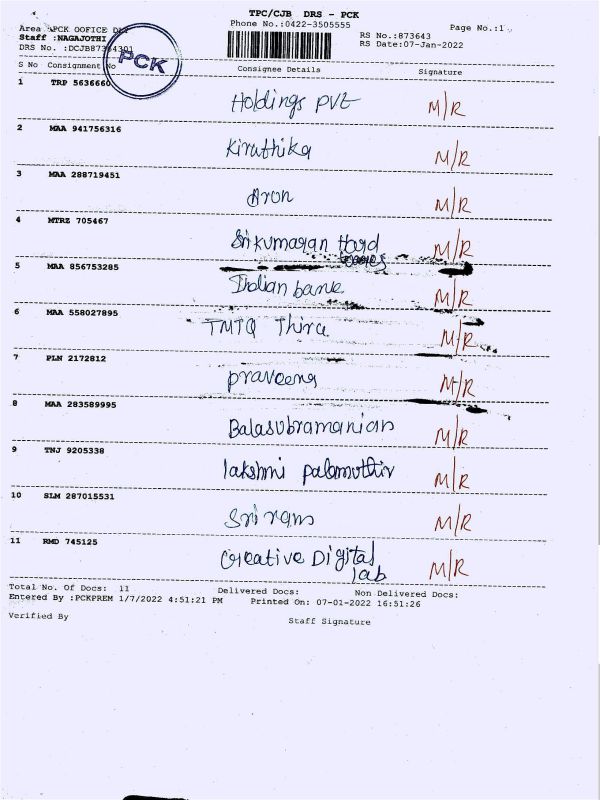 TPC/CJB DRS - PCK
Phone No.:0422-3505555
Page No.:1
Area :PCK OOFICE
Staff :NAGAJOTHI
DRS No. :DCJB87
RS No.:873643
RS Date:07-Jan-2022
PCK
S No Consignment No Consignee Details Signature
1 TRP 5636660 Holdings PVt M/R
2 MAA 941756316 Kiruthika M/R
3 MAA 288719451 Aron M/R
4 MTRZ 705467 Sri kumaran Hard M/R
5 MAA 856753285 Indian bank M/R
6 MAA 558027895 TMTQ Thira M/R
7 PLN 2172812 praveena M/R
8 MAA 283589995 Balasubramanian M/R
9 TNJ 9205338 lakshmi palamuthir M/R
10 SLM 287015531 Sri ram M/R
11 RMD 745125 Creative Digital M/R
lab
Total No. Of Docs: 11 Delivered Docs: Non Delivered Docs:
Entered By :PCKPREM 1/7/2022 4:51:21 PM Printed On: 07-01-2022 16:51:26
Verified By Staff Signature